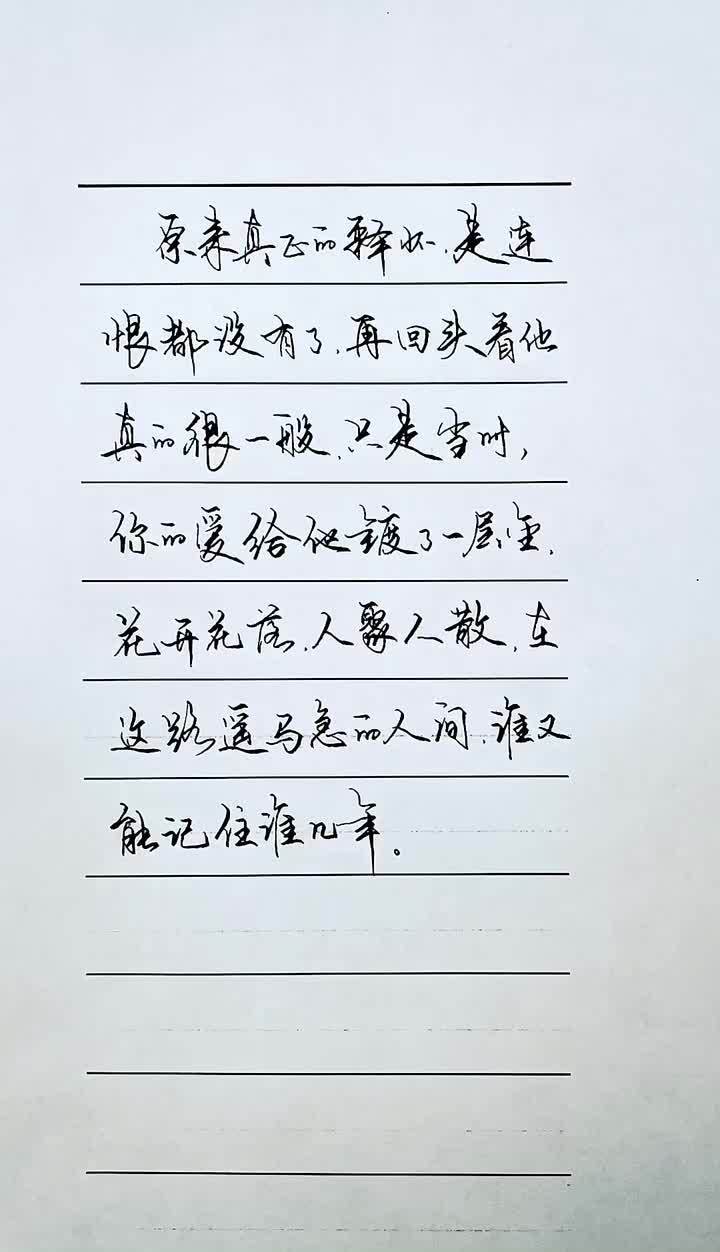 原来真正的释怀,是连
恨都没有了,再回头看他
真的很一般,只是当时,
你的爱给他镀了一层金,
花开花落,人聚人散,在
这路遥马急的人间,谁又
能记住谁几年。